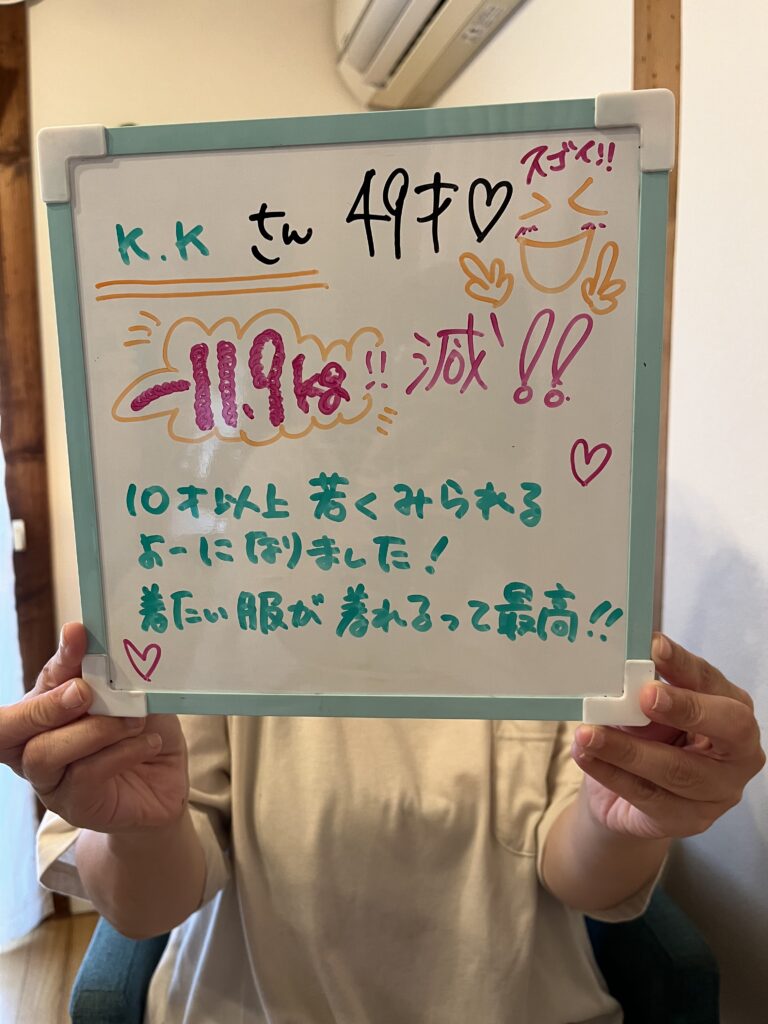 スゴイ!!
K.K さん 49才♡
-11.9kg!! 減!!
10才以上 若くみられる
よーになりました!
着たい服が 着れるって最高!!